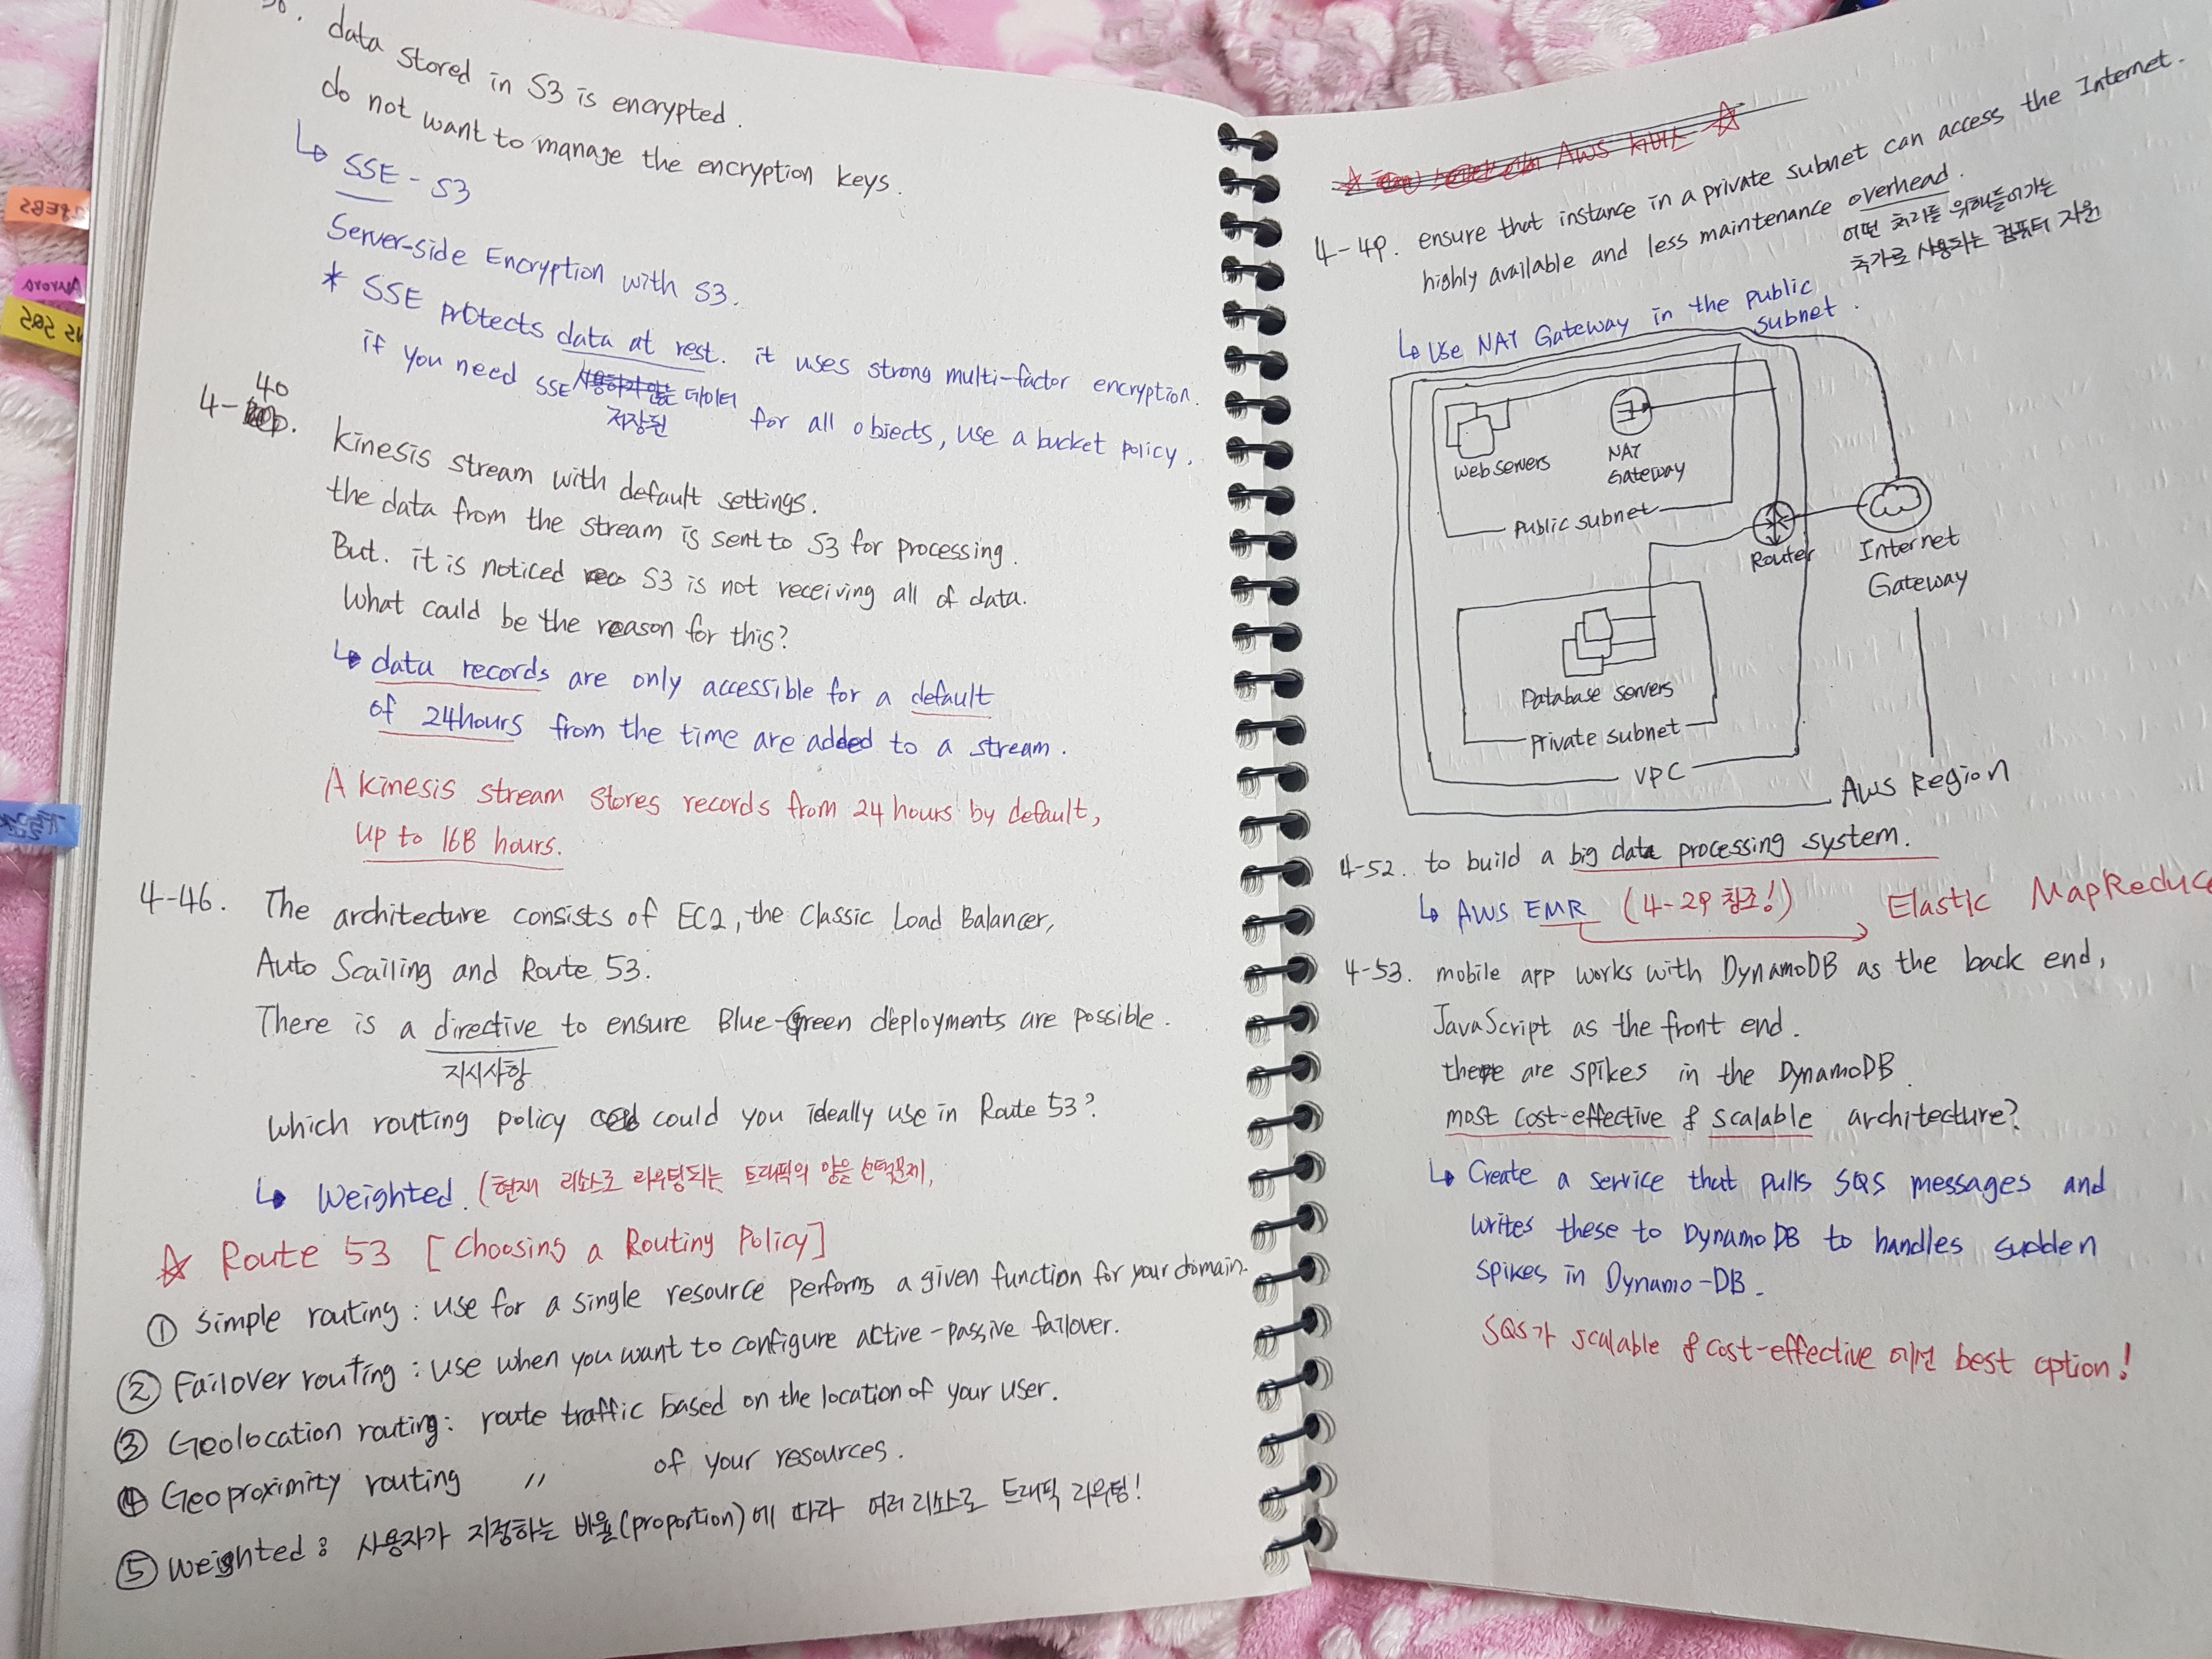 data stored in S3 is encrypted.
do not want to manage the encryption keys.
↳ SSE - S3
Server-side Encryption with S3.
* SSE protects data at rest. it uses strong multi-factor encryption.
사용하지 않는 데이터
저장된
if you need SSE for all objects, use a bucket policy.
4-40
Kinesis stream with default settings.
the data from the stream is sent to S3 for processing.
But. it is noticed S3 is not receiving all of data.
What could be the reason for this?
↳ data records are only accessible for a default
of 24hours from the time are added to a stream.
A kinesis stream stores records from 24 hours by default,
up to 168 hours.
4-46. The architecture consists of EC2, the Classic Load Balancer,
Auto Scailing and Route 53.
There is a directive to ensure Blue-Green deployments are possible.
지시사항
Which routing policy could you ideally use in Route 53?
↳ Weighted. (현재 리소스로 라우팅되는 트래픽의 양을
☆ Route 53 [Choosing a Routing Policy]
① Simple routing : use for a single resource performs a given function for your domain.
② Failover routing : use when you want to configure active-passive failover.
③ Geolocation routing : route traffic based on the location of your user.
④ Geoproximity routing 〃 of your resources.
⑤ Weighted : 사용자가 지정하는 비율(proportion)에 따라 여러 리소스로 트래픽 라우팅!
☆ AWS 서비스 ☆
4-49. ensure that instance in a private subnet can access the Internet.
highly available and less maintenance overhead.
어떤 처리를 위해 들어가는
추가로 사용되는 컴퓨터 자원
↳ Use NAT Gateway in the public
subnet.
Web servers
NAT
Gateway
Public subnet
Router
Internet
Gateway
Database servers
Private subnet
VPC
AWS Region
4-52. to build a big data processing system.
↳ AWS EMR (4-29 참조!) Elastic MapReduce
4-53. mobile app works with DynamoDB as the back end,
JavaScript as the front end.
there are spikes in the DynamoDB.
most cost-effective & scalable architecture?
↳ Create a service that pulls SQS messages and
writes these to DynamoDB to handles sudden
spikes in Dynamo-DB.
SQS가 scalable & cost-effective 에선 best option!